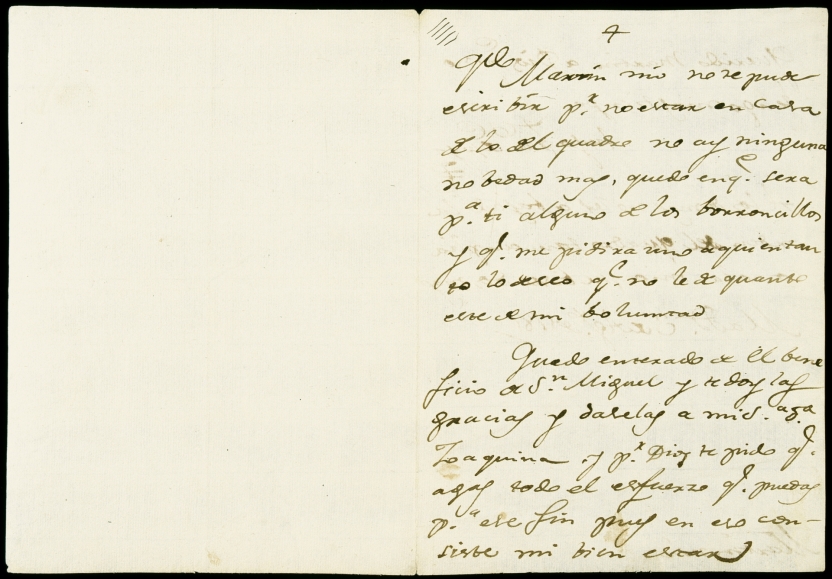 4
Qdo Martin mio no te pude
escribir p.r no estar en casa
de lo del quadro no ay ninguna
nobedad mas, quedo en q.e sera
p.a ti alguno de los borroncillos
y q.e me pidira uno a quien tan
to lo deseo q.e no le de quanto
este de mi boluntad
Quedo enterado de el bene
ficio de S.n Miguel y te doy las
gracias y daselas a mi S.a D.a
Joaquina y p.r Dios te pido q.e
agas todo el esfuerzo q.e puedas
p.a ese fin pues en eso con-
siste mi bien estar